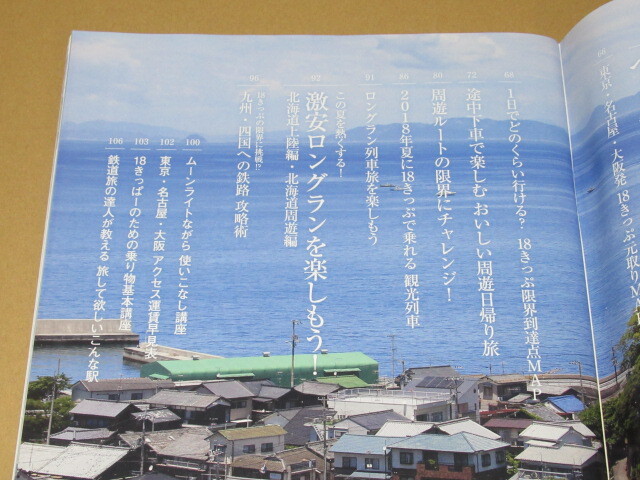 68
東京・名古屋・大阪発 18きっぷ元取りM
68
1日でどのくらい行ける? 18きっぷ限界到達点MAP
72
途中下車で楽しむ おいしい周遊日帰り旅
80
周遊ルートの限界にチャレンジ!
86
2018年夏に18きっぷで乗れる 観光列車
91
ロングラン列車旅を楽しもう
92
この夏を熱くする!
激安ロングランを楽しもう!
北海道上陸編・北海道周遊編
96
18きっぷの限界に挑戦!?
九州・四国への鉄路 攻略術
100
ムーンライトながら 使いこなし講座
102
東京・名古屋・大阪 アクセス運賃早見表
103
18きっぱーのための乗り物基本講座
106
鉄道旅の達人が教える 旅して欲しいこんな駅